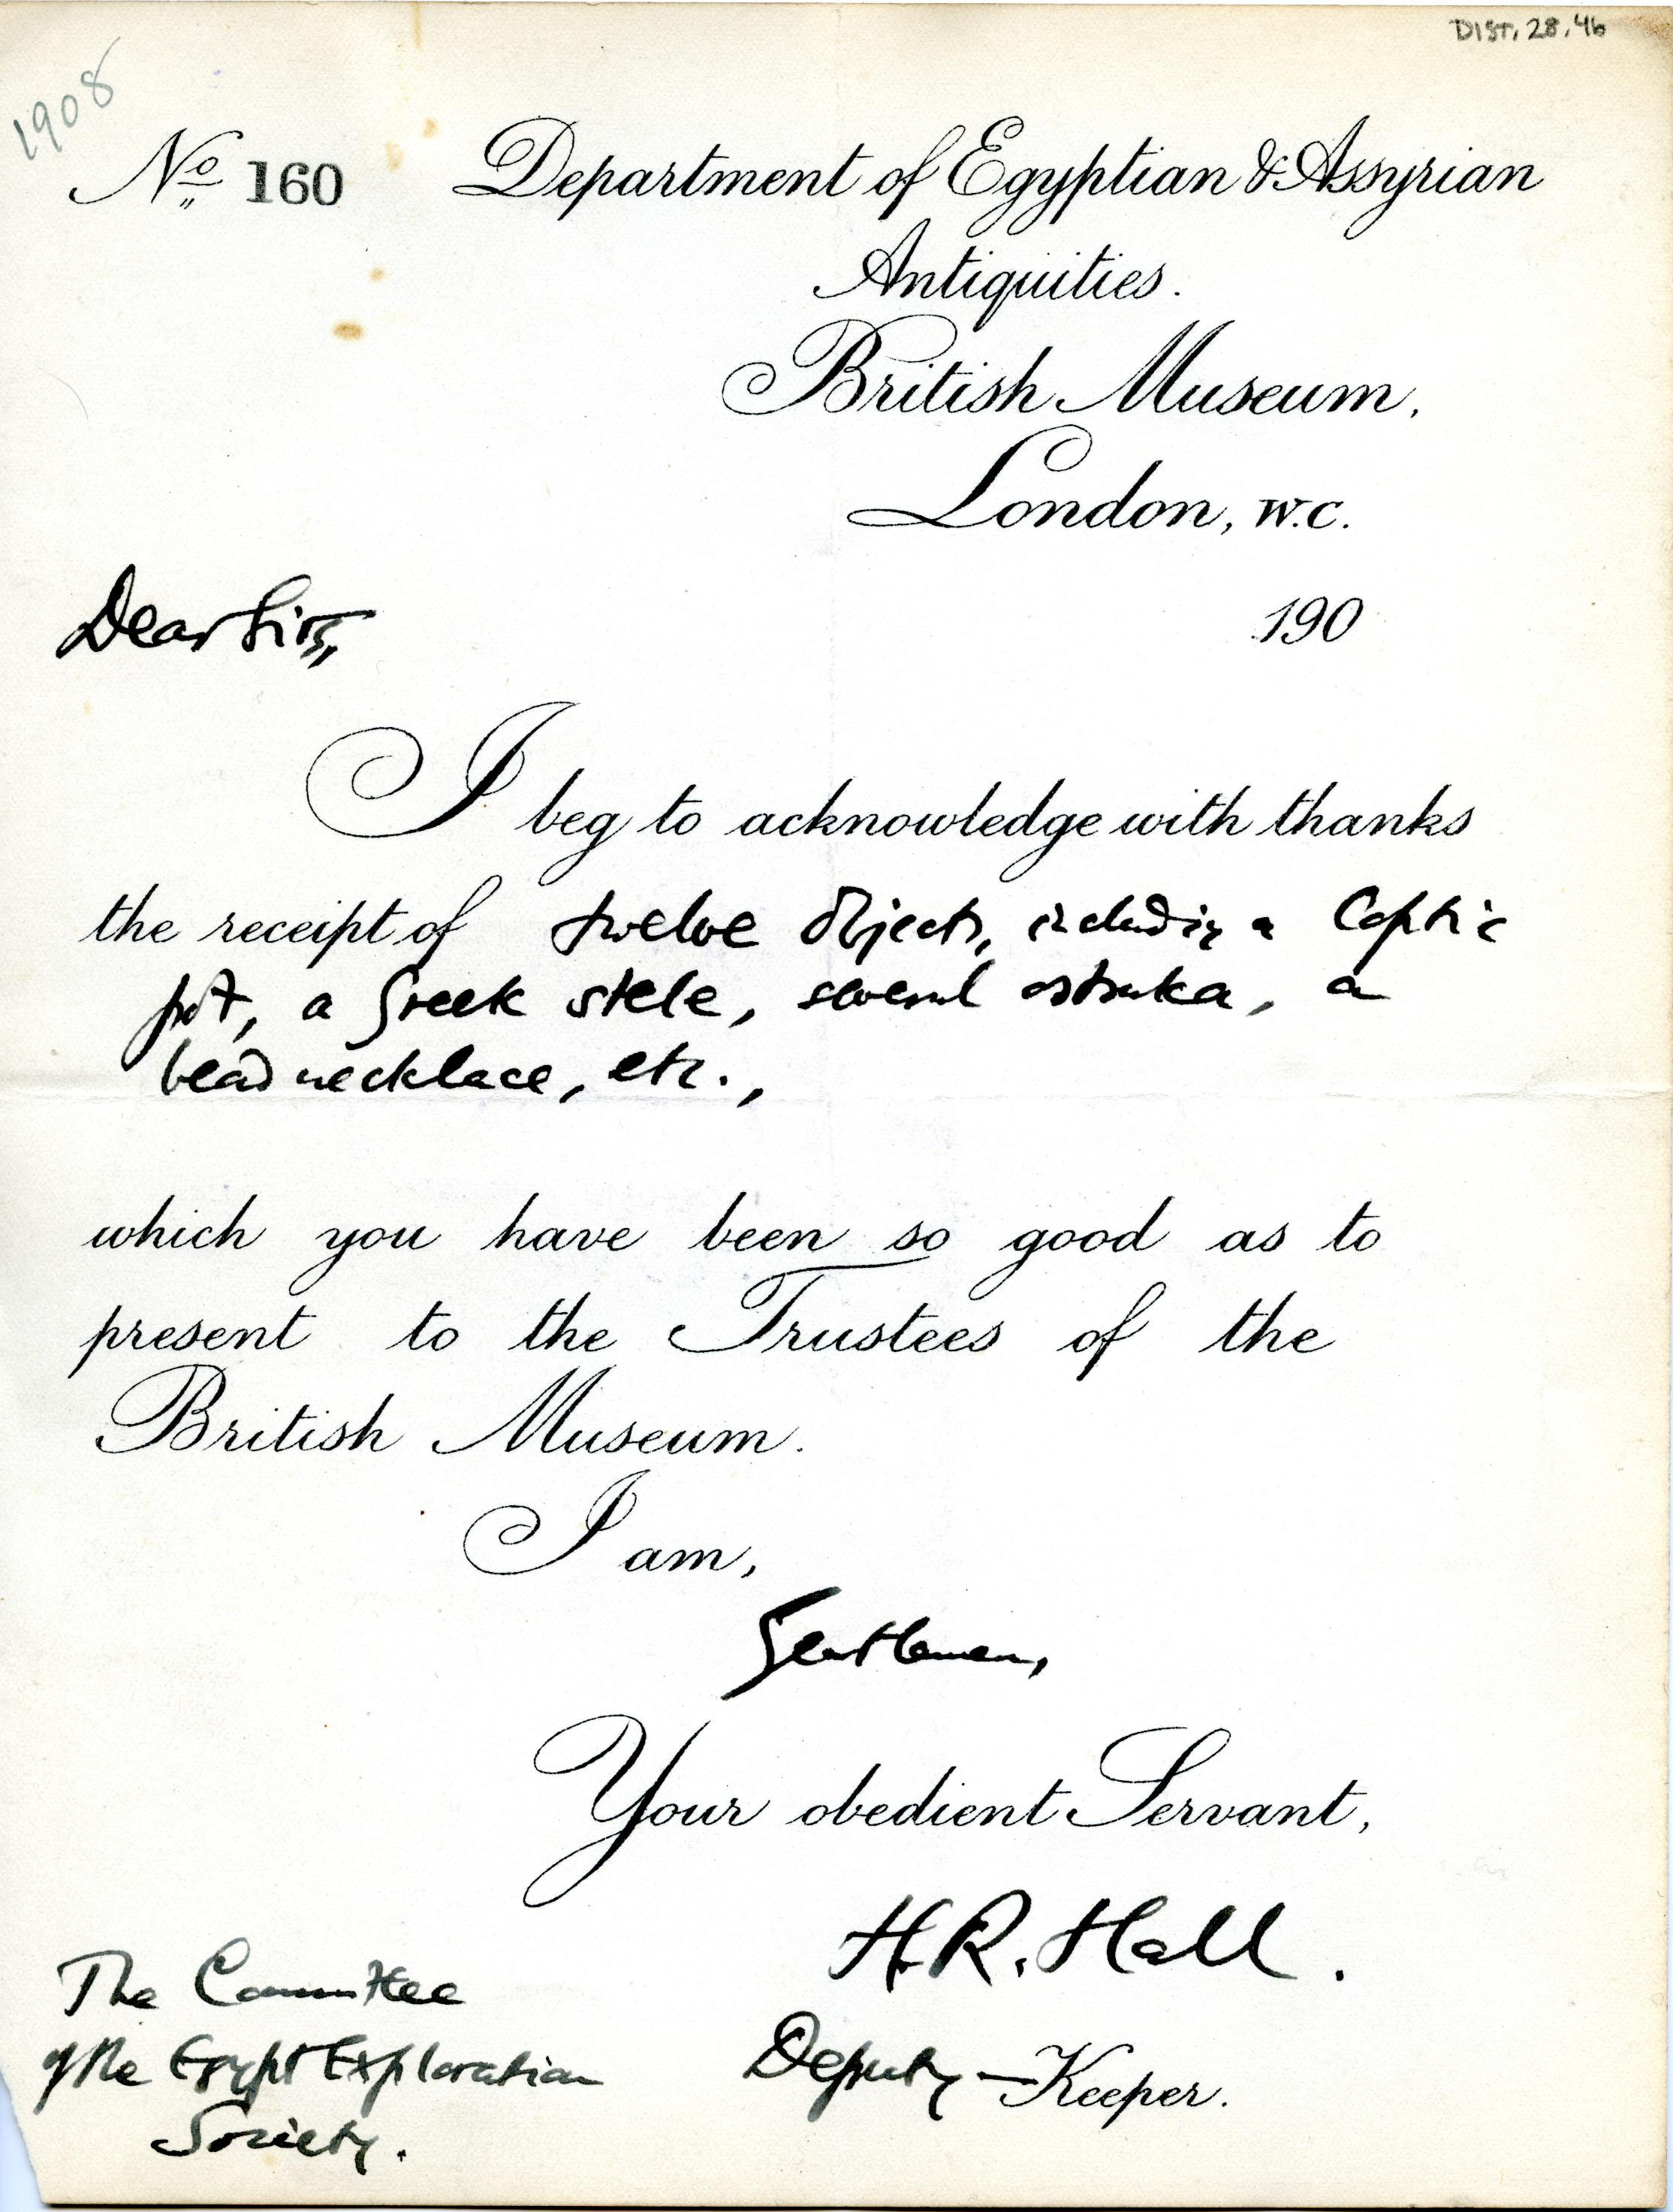 DIST. 28.46
1908
No. 160 Department of Egyptian & Assyrian
Antiquities.
British Museum.
London, W.C.
190
Dear Sirs,
I beg to acknowledge with thanks
the receipt of twelve objects, including a Coptic
pot, a Greek stele, several ostraka, a
bead necklace, etc.,
which you have been so good as to
present to the Trustees of the
British Museum.
I am,
Gentlemen,
Your obedient Servant,
H.R. Hall.
Deputy-Keeper.
The Committee
of the Egypt Exploration
Society.